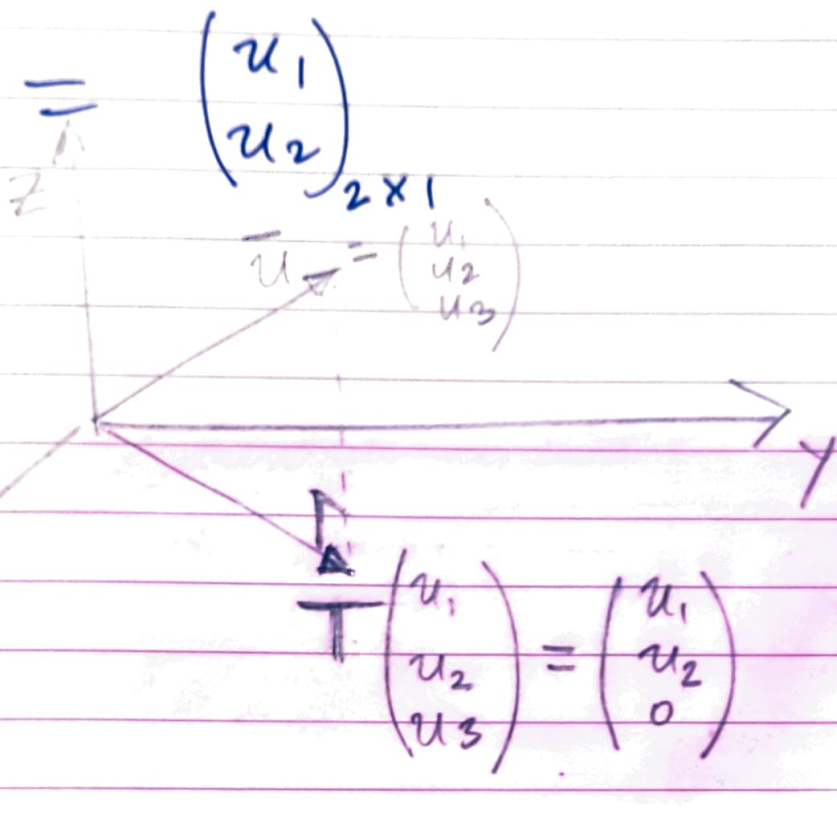 = (u₁
u₂)₂ₓ₁
Z
ū = (u₁
u₂
u₃)
Y
T (u₁
u₂
u₃) = (u₁
u₂
0)